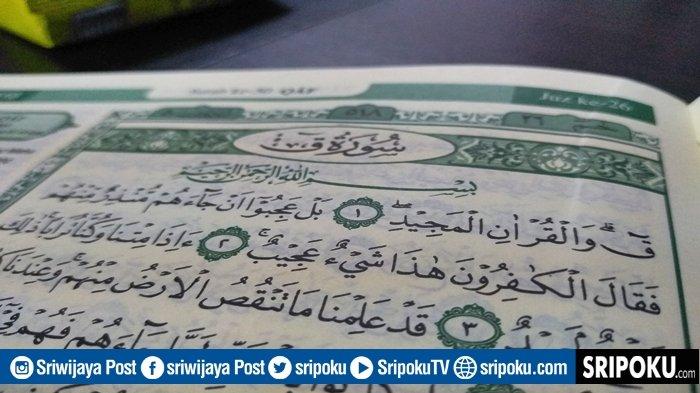 Juz ke-26
سُورَةُ قٓ
بِسْمِ اللّٰهِ الرَّحْمٰنِ الرَّحِيْمِ
قٓ ۗ وَالْقُرْاٰنِ الْمَجِيْدِ ۖ ١ بَلْ عَجِبُوْٓا اَنْ جَاۤءَهُمْ مُّنْذِرٌ مِّنْهُمْ
فَقَالَ الْكٰفِرُوْنَ هٰذَا شَيْءٌ عَجِيْبٌ ۚ ٢ ءَاِذَا مِتْنَا وَكُنَّا تُرَابًا ۚ ذٰلِكَ
٣ قَدْ عَلِمْنَا مَا تَنْقُصُ الْاَرْضُ مِنْهُمْ ۚ وَعِنْدَنَا
Sriwijaya Post sriwijaya Post sripoku SripokuTV sripoku.com SRIPOKU.com